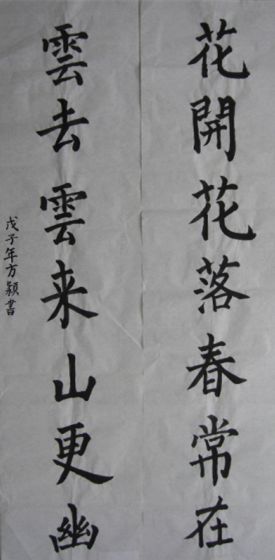 花開花落春常在
雲去雲来山更幽
戊子年方颖書